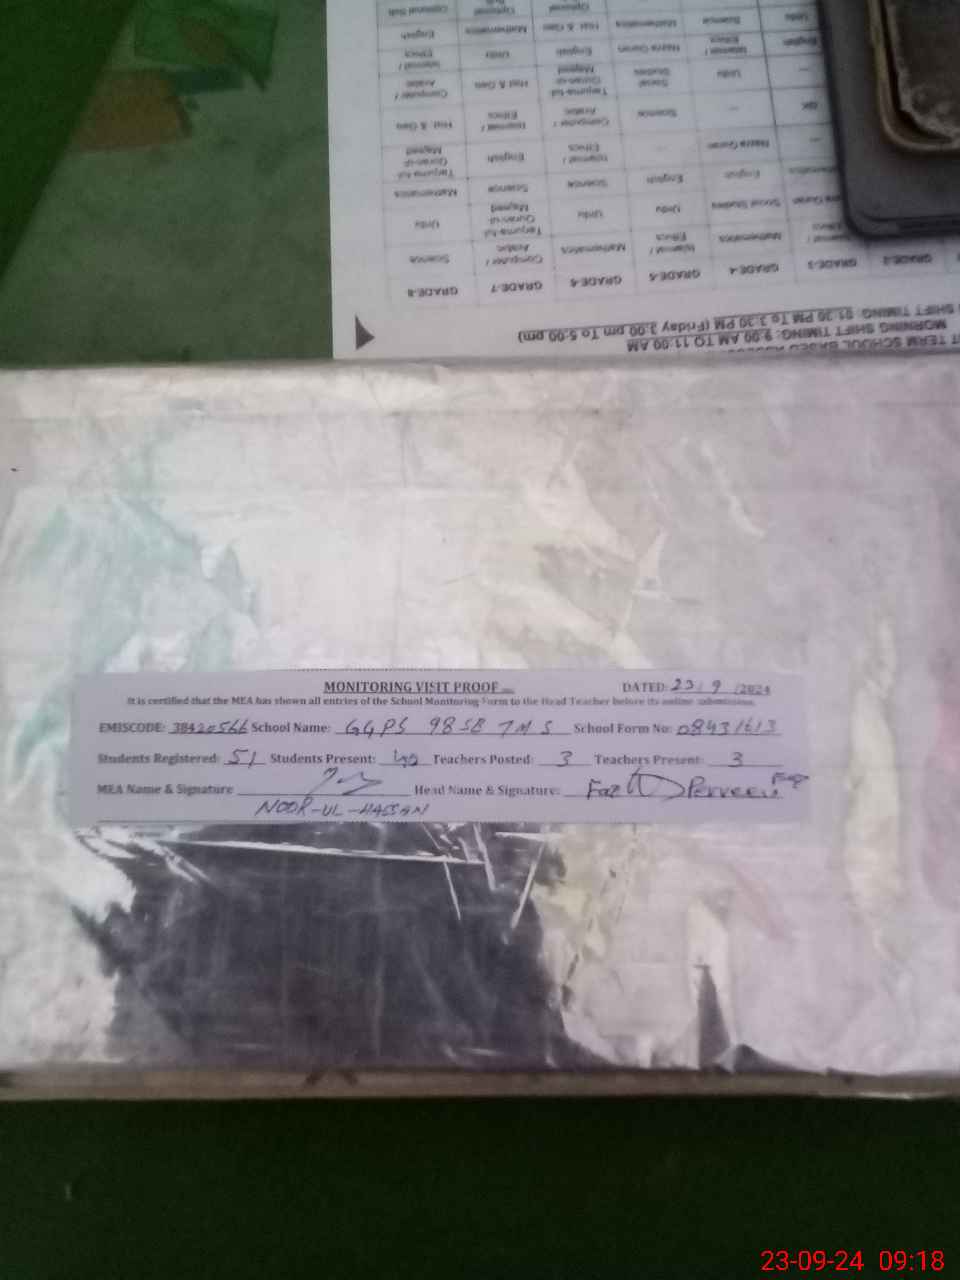 MORNING SHIFT TIMING: 9.00 AM TO 11:00 AM
SHIFT TIMING: 01.30 PM To 3.30 PM (Friday 3.00 pm To 5:00 pm)
GRADE-3 GRADE-4 GRADE-5 GRADE-6 GRADE-7 GRADE-8
Mathematics Islamiat / Ethics Mathematics Computer / Arabic Science
Social Studies Urdu Urdu Tarjuma-tul Quran-ul-Majeed Urdu
English English Science Science Mathematics
Nazra Quran — Islamiat / Ethics English Tarjuma-tul Quran-ul Majeed
GK — Science Computer / Arabic Islamiat / Ethics Hist & Geo
— Urdu Social Studies Tarjuma-tul Quran-ul Majeed Hist & Geo Computer / Arabic
English Islamiat / Ethics Nazra Quran English Urdu Islamiat / Ethics
Urdu Science Mathematics Hist & Geo Mathematics English
MONITORING VISIT PROOF
DATED: 23/9/2024
It is certified that the MEA has shown all entries of the School Monitoring Form to the Head Teacher before its online submission.
EMISCODE: 38420566 School Name: GGPS 98 SB TMS School Form No: 08431613
Students Registered: 51 Students Present: 40 Teachers Posted: 3 Teachers Present: 3
MEA Name & Signature Head Name & Signature: Perveen
NOOR-UL-HASSAN
23-09-24 09:18